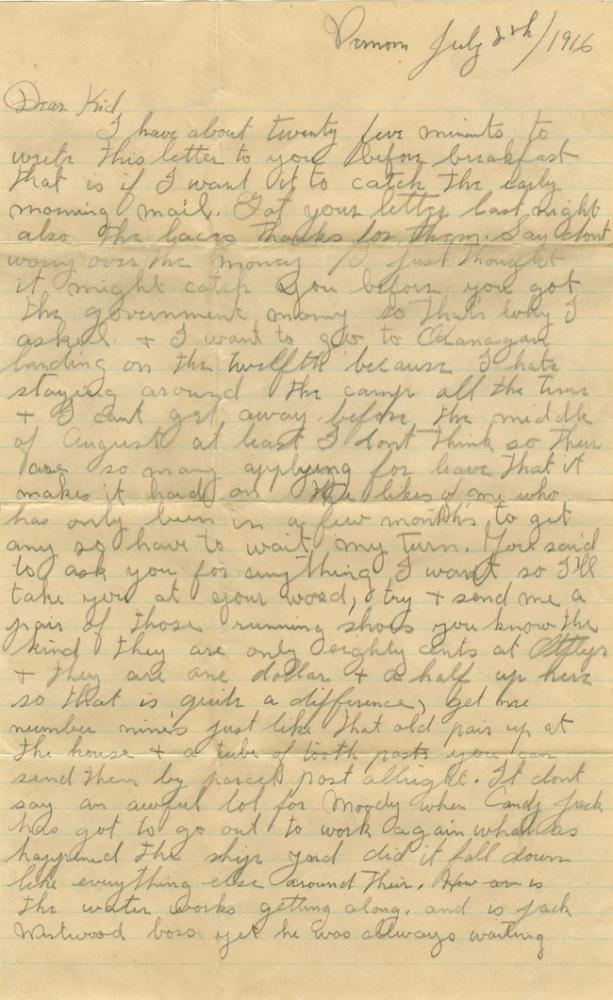 Vernon July 28th/1916
Dear Kid
I have about twenty five minuts to
write this letter to you before breakfast
that is if I want it to catch the early
morning mail. Got your letter last night
also the laces thanks for them. Say dont
worry over the money I just thought
it might catch you before you got
the government money so that's why I
asked. + I want to go to Okanagan
landing on the twelfth because I hate
staying around the camp all the time
+ I cant get away before the middle
of August at least I dont think so their
are so many applying for leave that it
makes it hard on the likes of me who
has only been in a few months to get
any so have to wait my turn. You said
to ask you for anything I want so I'll
take you at your word, try + send me a
pair of those running shoes you know the
kind they are only eighty cents at
+ they are one dollar + a half up here
so that is quite a difference, get me
number nine's just like that old pair up at
the house + a tube of tooth paste you can
send them by parcel post allright. It dont
say an awful lot for Moody when Candy Jack
has got to go out to work again what as
happened the ship yard did it fall down
like everything else around their. How are is
the water works getting along. and is Jack
Westwood boss yet he was allways waiting